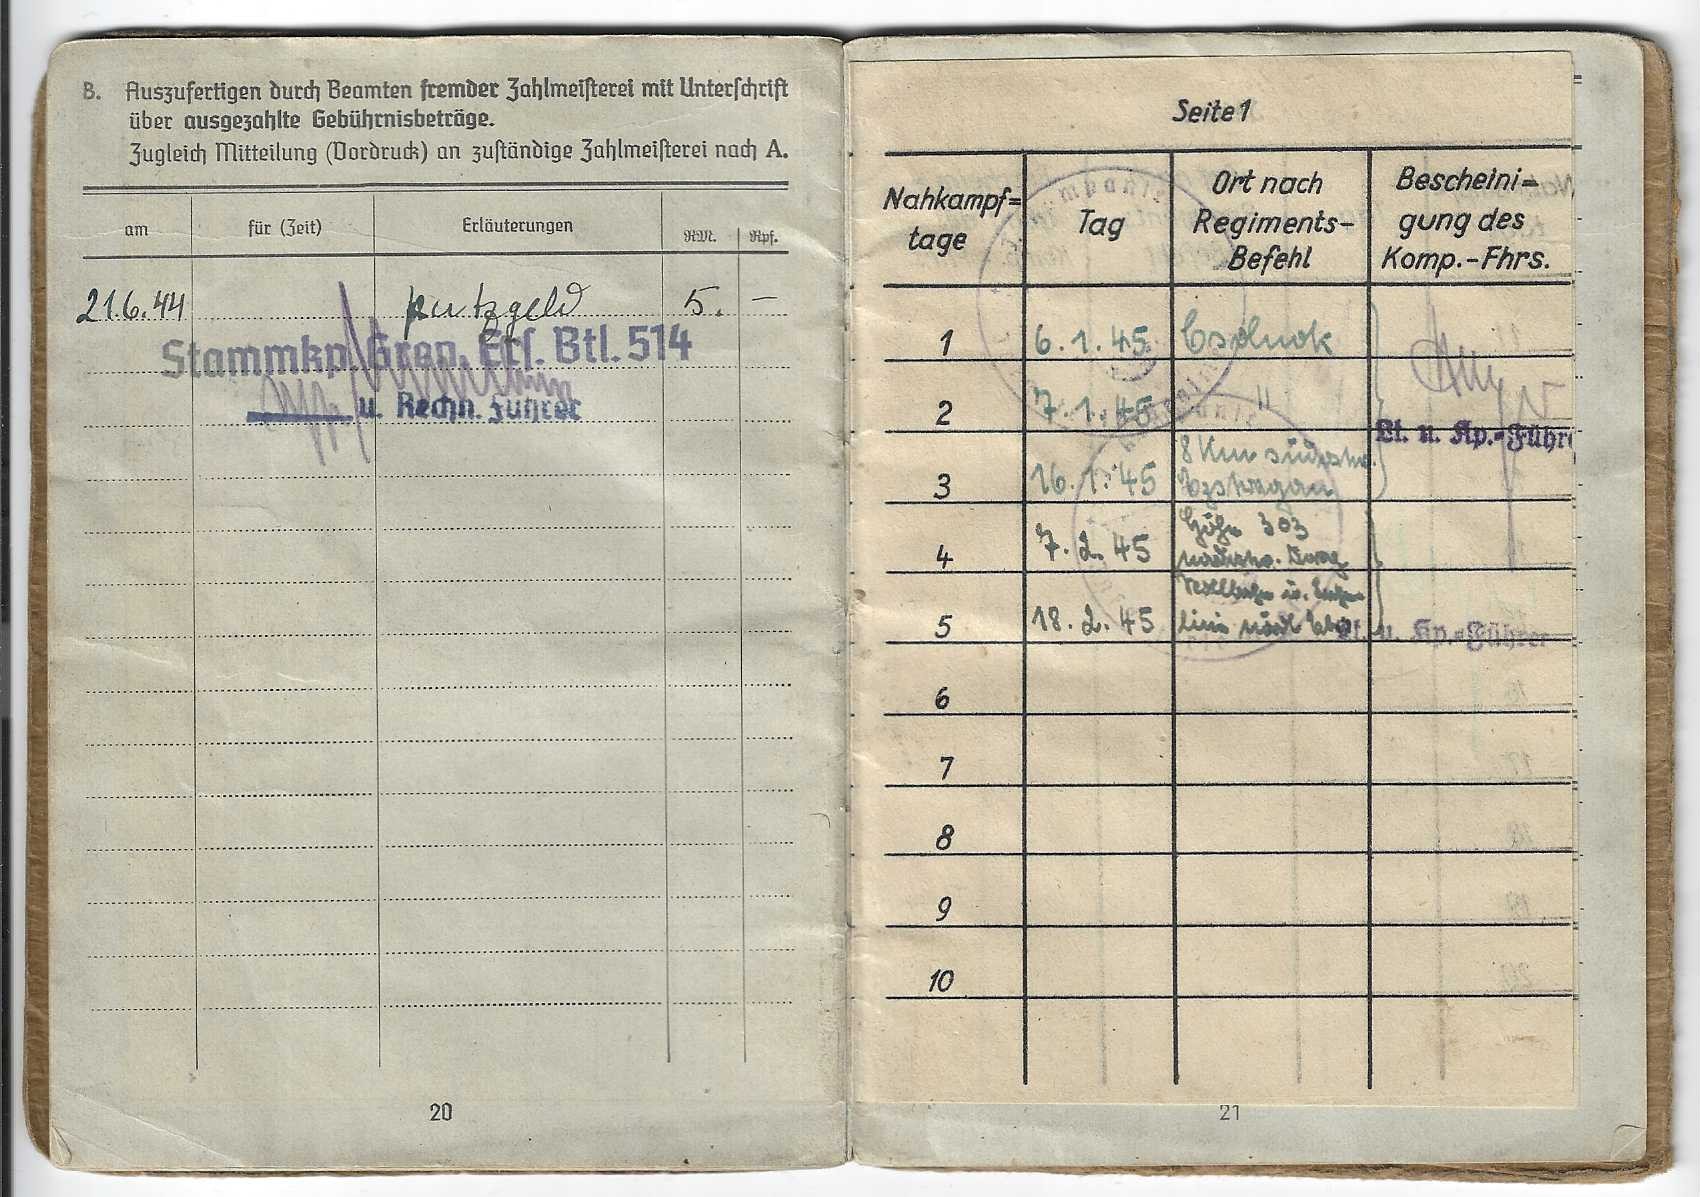 B. Auszufertigen durch Beamten fremder Zahlmeisterei mit Unterschrift
über ausgezahlte Gebührnisbeträge.
Zugleich Mitteilung (Vordruck) an zuständige Zahlmeisterei nach A.
am für (Zeit) Erläuterungen RM. Rpf.
21.6.44 putzgeld 5. –
Stammkp. Gren. Ers. Btl. 514
u. Rechn. Führer
20
Seite 1
Nahkampf=
tage
Tag
Ort nach
Regiments-
Befehl
Bescheini-
gung des
Komp.-Fhrs.
1 6.1.45 Csolnok
2 7.1.45 "
Lt. u. Kp.-Führer
3 16.1.45 8 Km südostw.
4 7.2.45 Höhe 303
5 18.2.45
Lt. u. Kp.-Führer
6
7
8
9
10
21